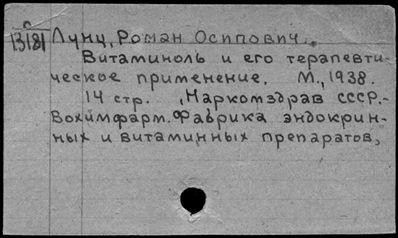 13181 Лунц, Роман Осипович.
Витаминоль и его терапевти-
ческое применение. М., 1938.
14 стр. , Наркомздрав СССР.-
Вохимфарм. Фабрика эндокрин-
ных и витаминных препаратов,